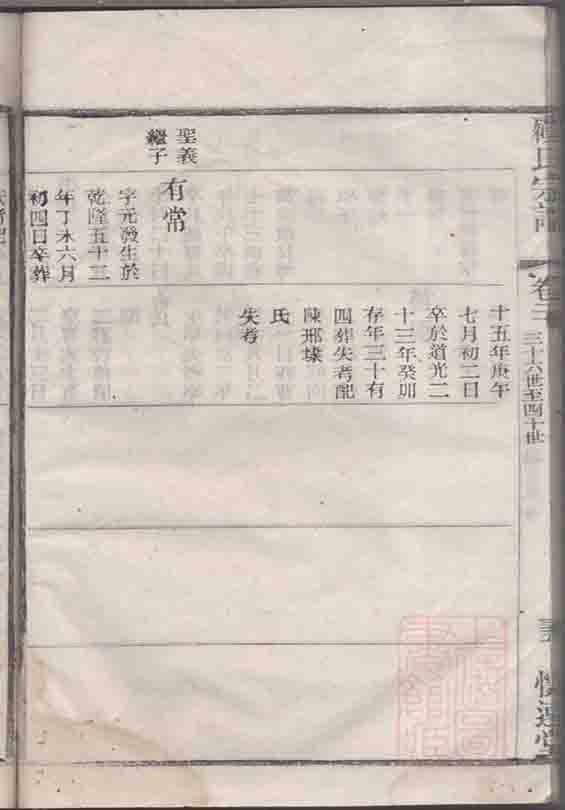 氏宗譜
卷三
三十六世至四十世
聖義
繼子
有常
字元發生於
乾隆五十二
年丁未六月
初四日卒葬
十五年庚午
七月初二日
卒於道光二
十三年癸卯
存年三十有
四葬失考配
陳邢壊
氏
失考